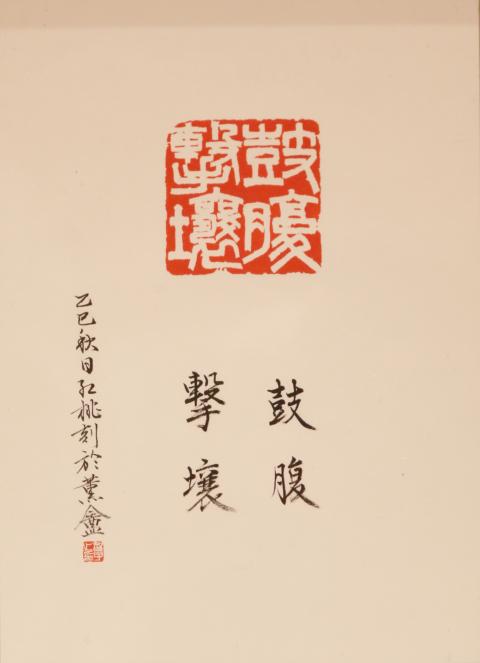 鼓腹
擊壤
鼓腹
擊壤
乙巳秋日红桃刻於薰盦